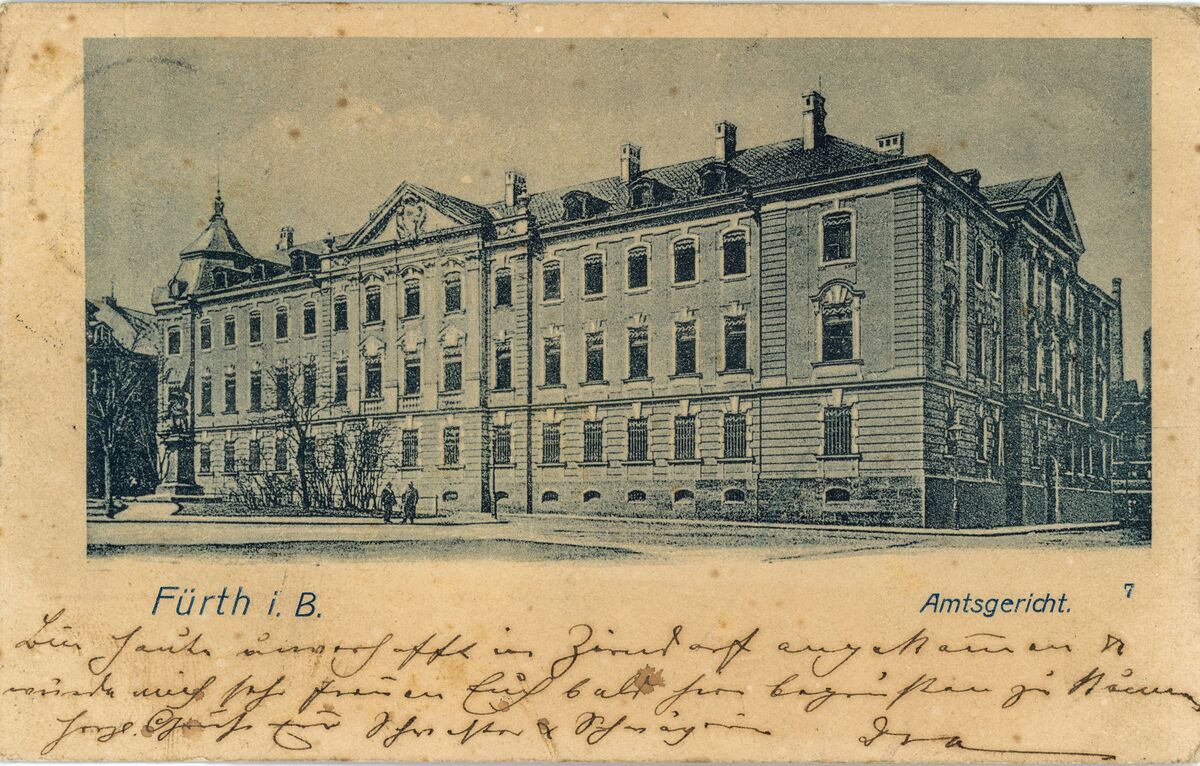 Fürth i. B.
Amtsgericht.
7
Bin heute unverhofft in Zirndorf angekommen &
würde mich sehr freuen Euch bald hier begrüßen zu können
herzl. Gruß Schwester & Schwägerin